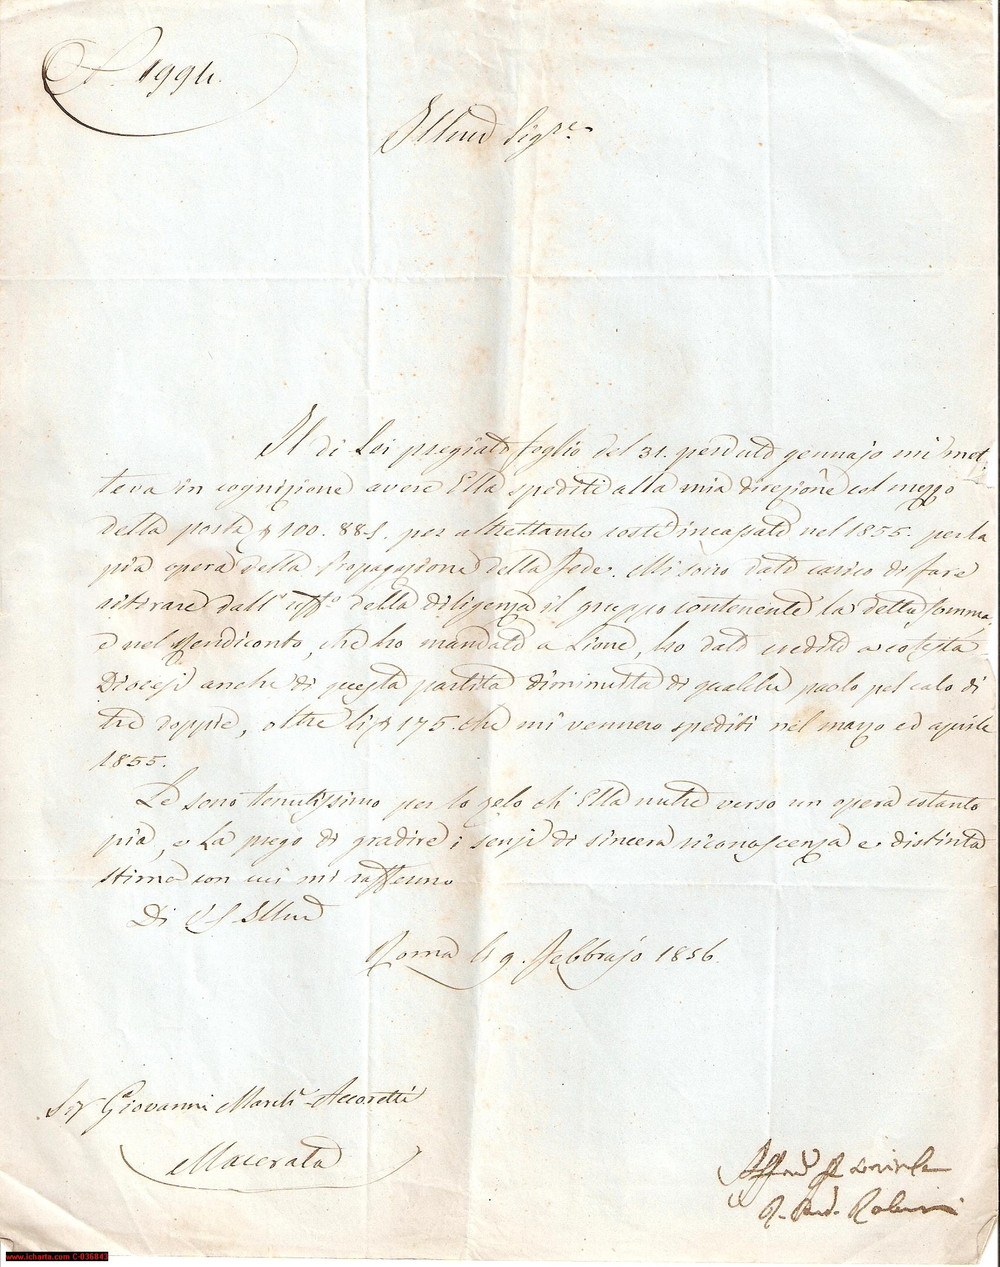 Illmo Sigre.
Il di Lei pregiato foglio del 31. perduto gennajo mi met-
teva in cognizione avere Ella spediti alla mia direzione col mezzo
della posta 100. 88 per altrettanto costì incassato nel 1855. per la
pia opera della Propagazione della Fede. Mi sono dato carico di fare
ritirare dall' uffo. della diligenza il gruppo contenente la detta somma,
e nel rendiconto, che ho mandato a Lione, ho dato credito a cotesta
Diocesi anche di questa partita diminuita di qualche paolo pel calo di
tre doppie, oltre li 175. che mi vennero spediti nel marzo ed aprile
1855.
Le sono tenutissimo per lo zelo ch' Ella nutre verso un opera cotanto
pia, e La prego di gradire i sensi di sincera riconoscenza e distinta
stima con cui mi raffermo
Di V. S. Illma
Roma li 9. Febbrajo 1856.
Sigr Giovanni Accoretti
Macerata
www.icharta.com C-036843